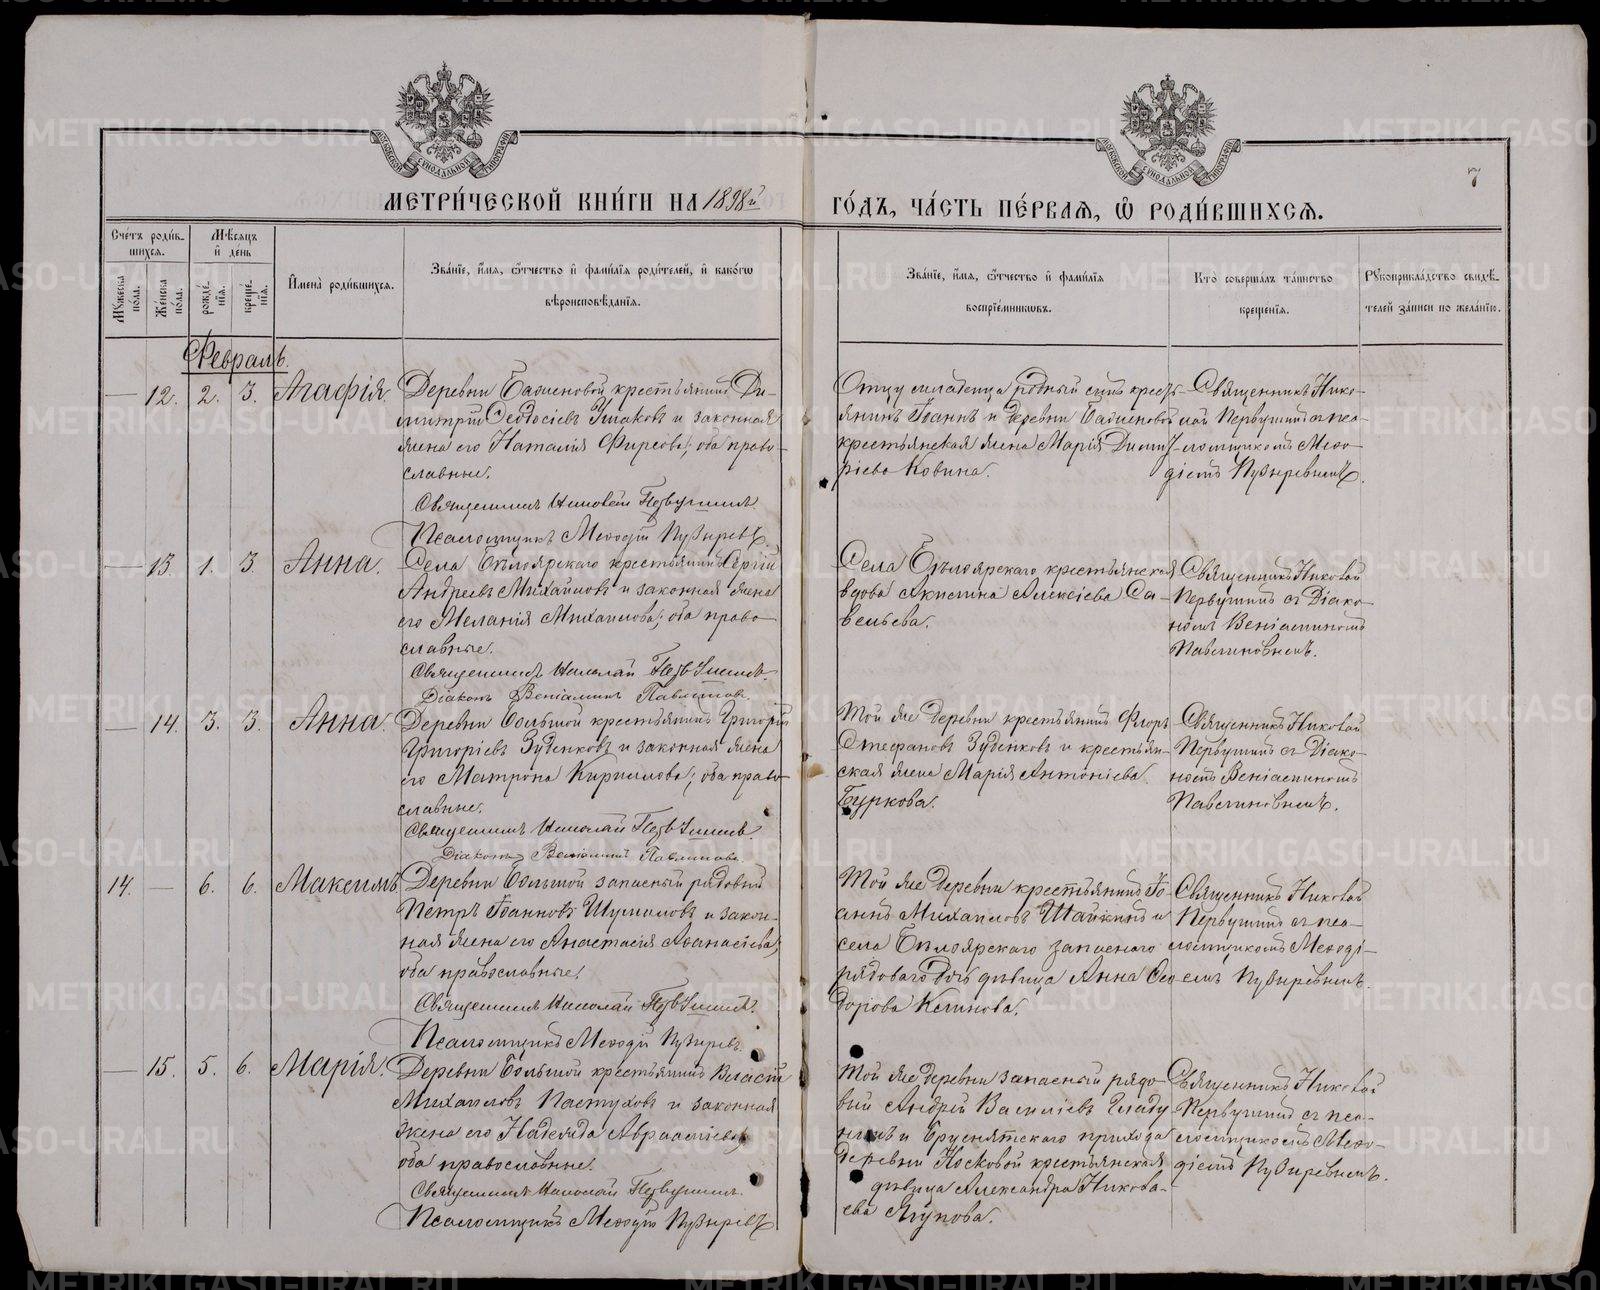 МЕТРИ́ЧЕСКОЙ КНИ́ГИ НА 1898й
ГО́ДЪ, ЧА́СТЬ ПЕ́РВАЯ, Ѽ РОДИ́ВШИХСЯ.
7
Сче́тъ роди́в-
шихся.
Мꙋ́жеска по́ла.
Же́нска по́ла.
Мѣ́сяцъ
и҆ де́нь
рожде́нія.
креще́нія.
И҆мена̀ роди́вшихся.
Зва́ніе, и҆́мя, ѻ҆́тчество и҆ фами́лія роди́телей, и҆ како́гѡ
вѣроисповѣ́данія.
Зва́ніе, и҆́мя, ѻ҆́тчество и҆ фами́лія
воспріе́мникѡвъ.
Кто̀ соверша́лъ та́инство
креще́нія.
Рꙋкоприкла́дство свидѣ́-
телей за́писи по жела́нію.
Февраль.
— 12. 2. 3. Агафія.
Деревни Баженовой крестьянинъ Ди-
митрій Ѳеодосіевъ Ушаковъ и законная
жена его Наталія Фирсова; оба право-
славные.
Священникъ Николай Первушинъ
Псаломщикъ Меѳодій Пузыревъ
Отцу младенца родный сынъ кресть-
янинъ Іоаннъ и деревни Баженовой
крестьянская жена Марія Димит-
ріева Ковина.
Священникъ Нико-
лай Первушинъ съ пса-
ломщикомъ Меѳо-
діемъ Пузыревымъ.
— 13. 1. 3. Анна.
Села Бѣлоярскаго крестьянинъ Сергій
Андреевъ Михайловъ и законная жена
его Меланія Михаилова; оба право-
славные.
Священникъ Николай Первушинъ
Діаконъ Веніаминъ Павлиновъ.
Села Бѣлоярскаго крестьянская
вдова Акилина Алексіева Са-
вельева.
Священникъ Николай
Первушинъ съ Діако-
номъ Веніаминомъ
Павлиновымъ.
— 14. 3. 3. Анна.
Деревни Большой крестьянинъ Григорій
Григоріевъ Зуденковъ и законная жена
его Матрона Кириллова; оба право-
славные.
Священникъ Николай Первушинъ.
Діаконъ Веніаминъ Павлиновъ.
Той же деревни крестьянинъ Флоръ
Стефановъ Зуденковъ и крестьян-
ская жена Марія Антоніева
Буркова.
Священникъ Николай
Первушинъ съ Діако-
номъ Веніаминомъ
Павлиновымъ.
14. — 6. 6. Максимъ
Деревни Большой запасный рядовый
Петръ Іоанновъ Шумиловъ и закон-
ная жена его Анастасія Аѳанасіева;
оба православные.
Священникъ Николай Первушинъ.
Псаломщикъ Меѳодій Пузыревъ.
Той же деревни крестьянинъ Іо-
аннъ Михаиловъ и
села Бѣлоярскаго запаснаго
рядоваго дочь дѣвица Анна Ѳео-
дорова Клинова.
Священникъ Николай
Первушинъ съ пса-
ломщикомъ Меѳоді-
емъ Пузыревымъ.
— 15. 5. 6. Марія.
Деревни Большой крестьянинъ Власій
Михаиловъ Пастуховъ и законная
жена его Надежда Аврааміева;
оба православные.
Священникъ Николай Первушинъ.
Псаломщикъ Меѳодій Пузыревъ
Той же деревни запасный рядо-
вый Андрей Василіевъ Гладу-
нъ и Бруснятскаго прихода
деревни Носковой крестьянская
дѣвица Александра Никола-
ева Ягупова.
Священникъ Николай
Первушинъ съ пса-
ломщикомъ Меѳо-
діемъ Пузыревымъ.
METRIKI.GASO-URAL.RU